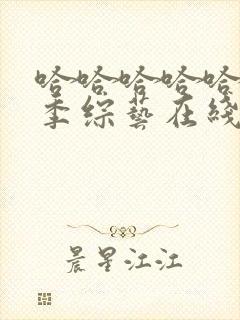 哈哈哈哈哈
季综艺在线
晨星江江